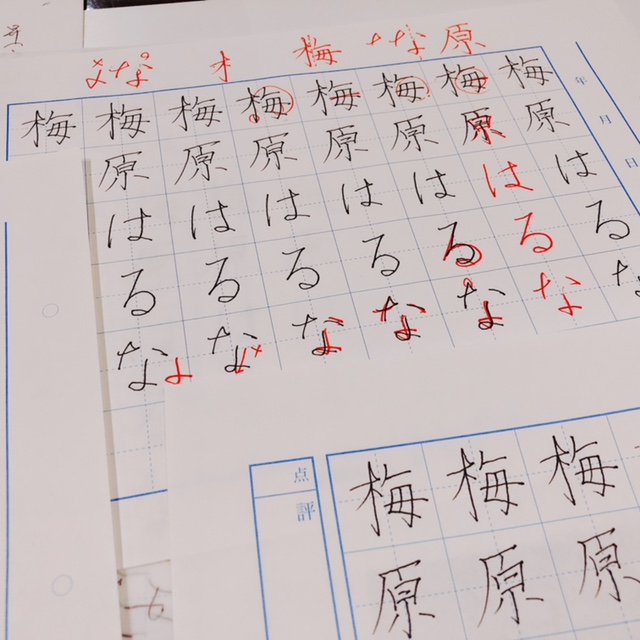 なな オ 梅 な 原
年 月 日
梅原はるな
梅原はるな
梅原はるな
梅原はるな
梅原はるな
梅原はるな
梅原はるな
梅
梅原
梅原
梅原
点
評